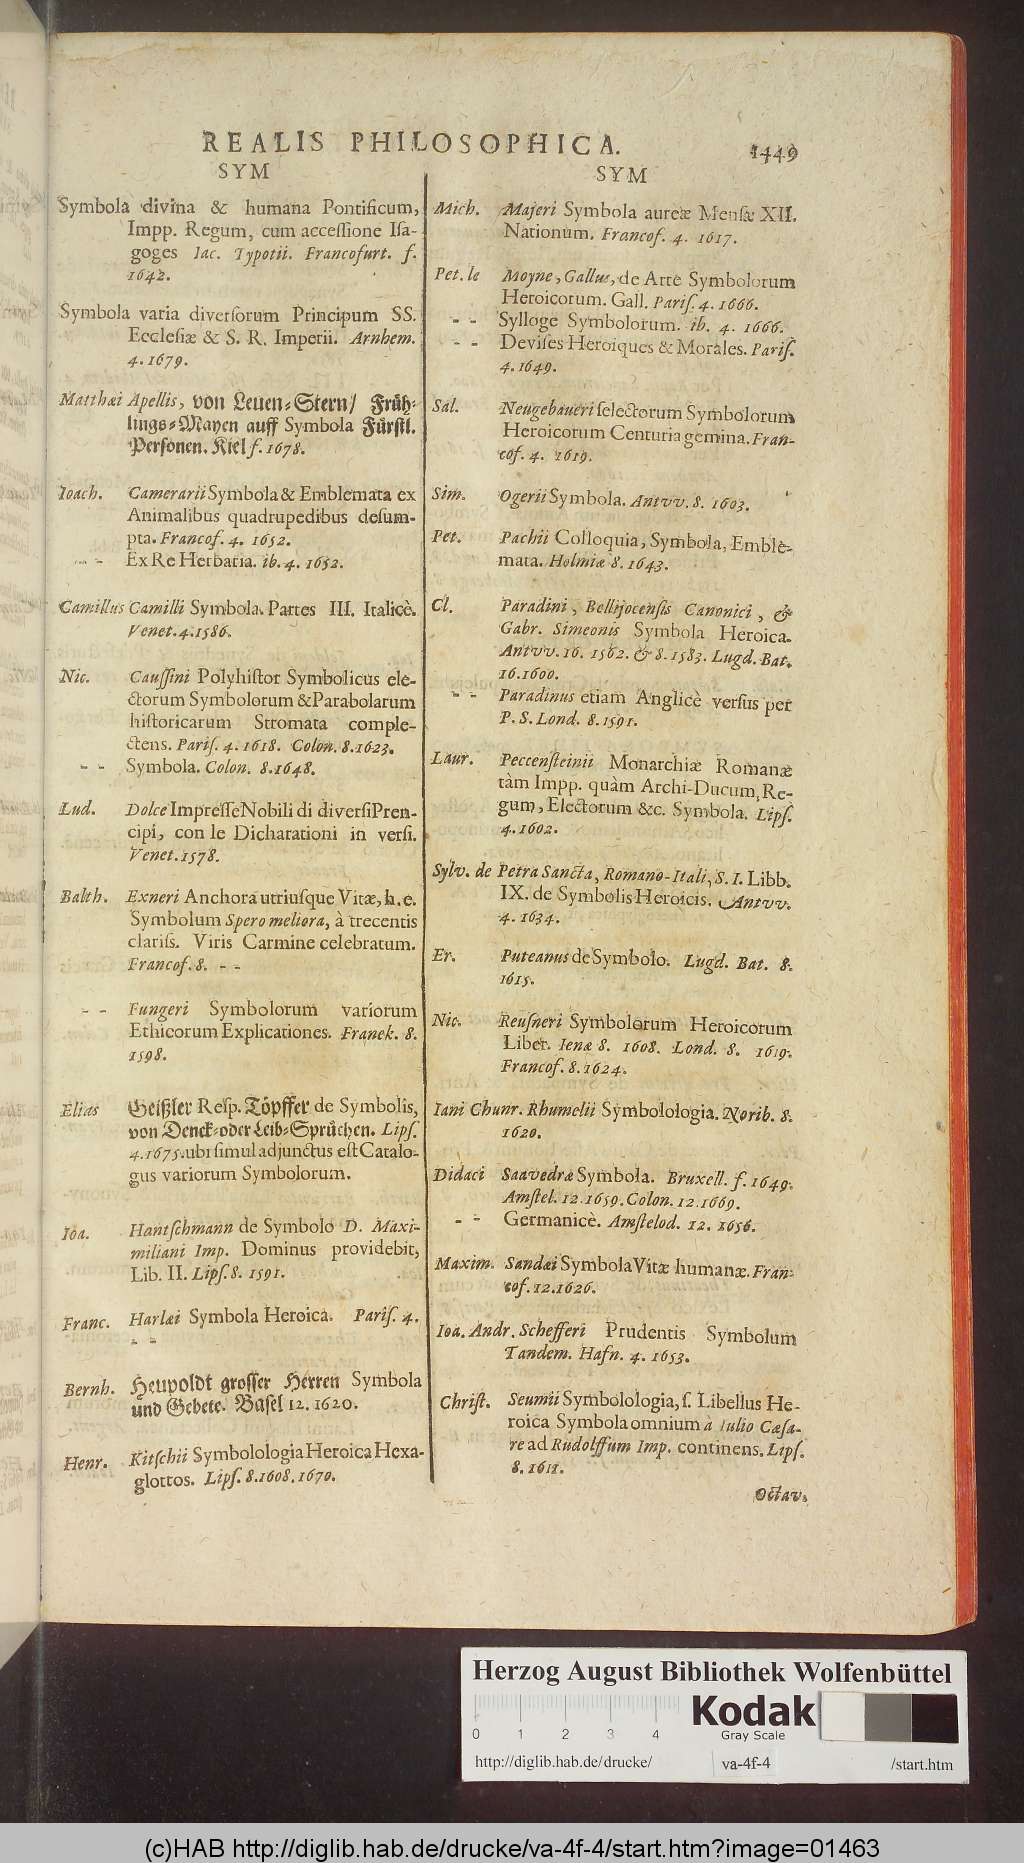 REALIS PHILOSOPHICA. 1449
SYM
Symbola divina & humana Pontificum,
Impp. Regum, cum accessione Isa-
goges Iac. Typotii. Francofurt. f.
1642.
Symbola varia diversorum Principum SS.
Ecclesiæ & S. R. Imperii. Arnhem.
4. 1679.
Matthæi Apellis, von Leuen-Stern/ Früh-
lings-Mayen auff Symbola Fürstl.
Personen. Kiel f. 1678.
Ioach. Camerarii Symbola & Emblemata ex
Animalibus quadrupedibus desum-
pta. Francof. 4. 1652.
-- Ex Re Herbaria. ib. 4. 1652.
Camillus Camilli Symbola. Partes III. Italicè.
Venet. 4. 1586.
Nic. Caussini Polyhistor Symbolicus ele-
ctorum Symbolorum & Parabolarum
historicarum Stromata comple-
ctens. Paris. 4. 1618. Colon. 8. 1623.
-- Symbola. Colon. 8. 1648.
Lud. Dolce Impresse Nobili di diversi Pren-
cipi, con le Dicharationi in versi.
Venet. 1578.
Balth. Exneri Anchora utriusque Vitæ, h. e.
Symbolum Spero meliora, à trecentis
clariss. Viris Carmine celebratum.
Francof. 8. --
-- Fungeri Symbolorum variorum
Ethicorum Explicationes. Franek. 8.
1598.
Elias Geißler Resp. Töpffer de Symbolis,
von Denck-oder Leib-Sprüchen. Lips.
4. 1675. ubi simul adjunctus est Catalo-
gus variorum Symbolorum.
Ioa. Hantschmann de Symbolo D. Maxi-
miliani Imp. Dominus providebit,
Lib. II. Lips. 8. 1591.
Franc. Harlæi Symbola Heroica. Paris. 4.
--
Bernh. Heupoldt grosser Herren Symbola
und Gebete. Basel 12. 1620.
Henr. Kitschii Symbolologia Heroica Hexa-
glottos. Lips. 8. 1608. 1670.
SYM
Mich. Majeri Symbola aureæ Mensæ XII.
Nationum. Francof. 4. 1617.
Pet. le Moyne, Gallus, de Arte Symbolorum
Heroicorum. Gall. Paris. 4. 1666.
-- Sylloge Symbolorum. ib. 4. 1666.
-- Devises Heroiques & Morales. Paris.
4. 1649.
Sal. Neugebaueri selectorum Symbolorum
Heroicorum Centuria gemina. Fran-
cof. 4. 1619.
Sim. Ogerii Symbola. Antvv. 8. 1603.
Pet. Pachii Colloquia, Symbola, Emble-
mata. Holmiæ 8. 1643.
Cl. Paradini, Bellijocensis Canonici, &
Gabr. Simeonis Symbola Heroica.
Antvv. 16. 1562. & 8. 1583. Lugd. Bat.
16. 1600.
-- Paradinus etiam Anglicè versus per
P. S. Lond. 8. 1591.
Laur. Peccensteinii Monarchiæ Romanæ
tàm Impp. quàm Archi-Ducum, Re-
gum, Electorum &c. Symbola. Lips.
4. 1602.
Sylv. de Petra Sancta, Romano-Itali, S. I. Libb.
IX. de Symbolis Heroicis. Antvv.
4. 1634.
Er. Puteanus de Symbolo. Lugd. Bat. 8.
1615.
Nic. Reusneri Symbolorum Heroicorum
Liber. Ienæ 8. 1608. Lond. 8. 1619.
Francof. 8. 1624.
Iani Chunr. Rhumelii Symbolologia. Norib. 8.
1620.
Didaci Saavedræ Symbola. Bruxell. f. 1649.
Amstel. 12. 1659. Colon. 12. 1669.
-- Germanicè. Amstelod. 12. 1656.
Maxim. Sandæi Symbola Vitæ humanæ. Fran-
cof. 12. 1626.
Ioa. Andr. Schefferi Prudentis Symbolum
Tandem. Hafn. 4. 1653.
Christ. Seumii Symbolologia, s. Libellus He-
roica Symbola omnium à Iulio Cæsa-
re ad Rudolffum Imp. continens. Lips.
8. 1611.
Octav.
Herzog August Bibliothek Wolfenbüttel
0 1 2 3 4 Kodak
Gray Scale
http://diglib.hab.de/drucke/ va-4f-4 /start.htm
(c)HAB http://diglib.hab.de/drucke/va-4f-4/start.htm?image=01463